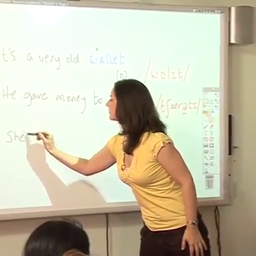 t's a very old wallet
[ɒ] /wɒlɪt/
He gave money to /tʃærəti/
She